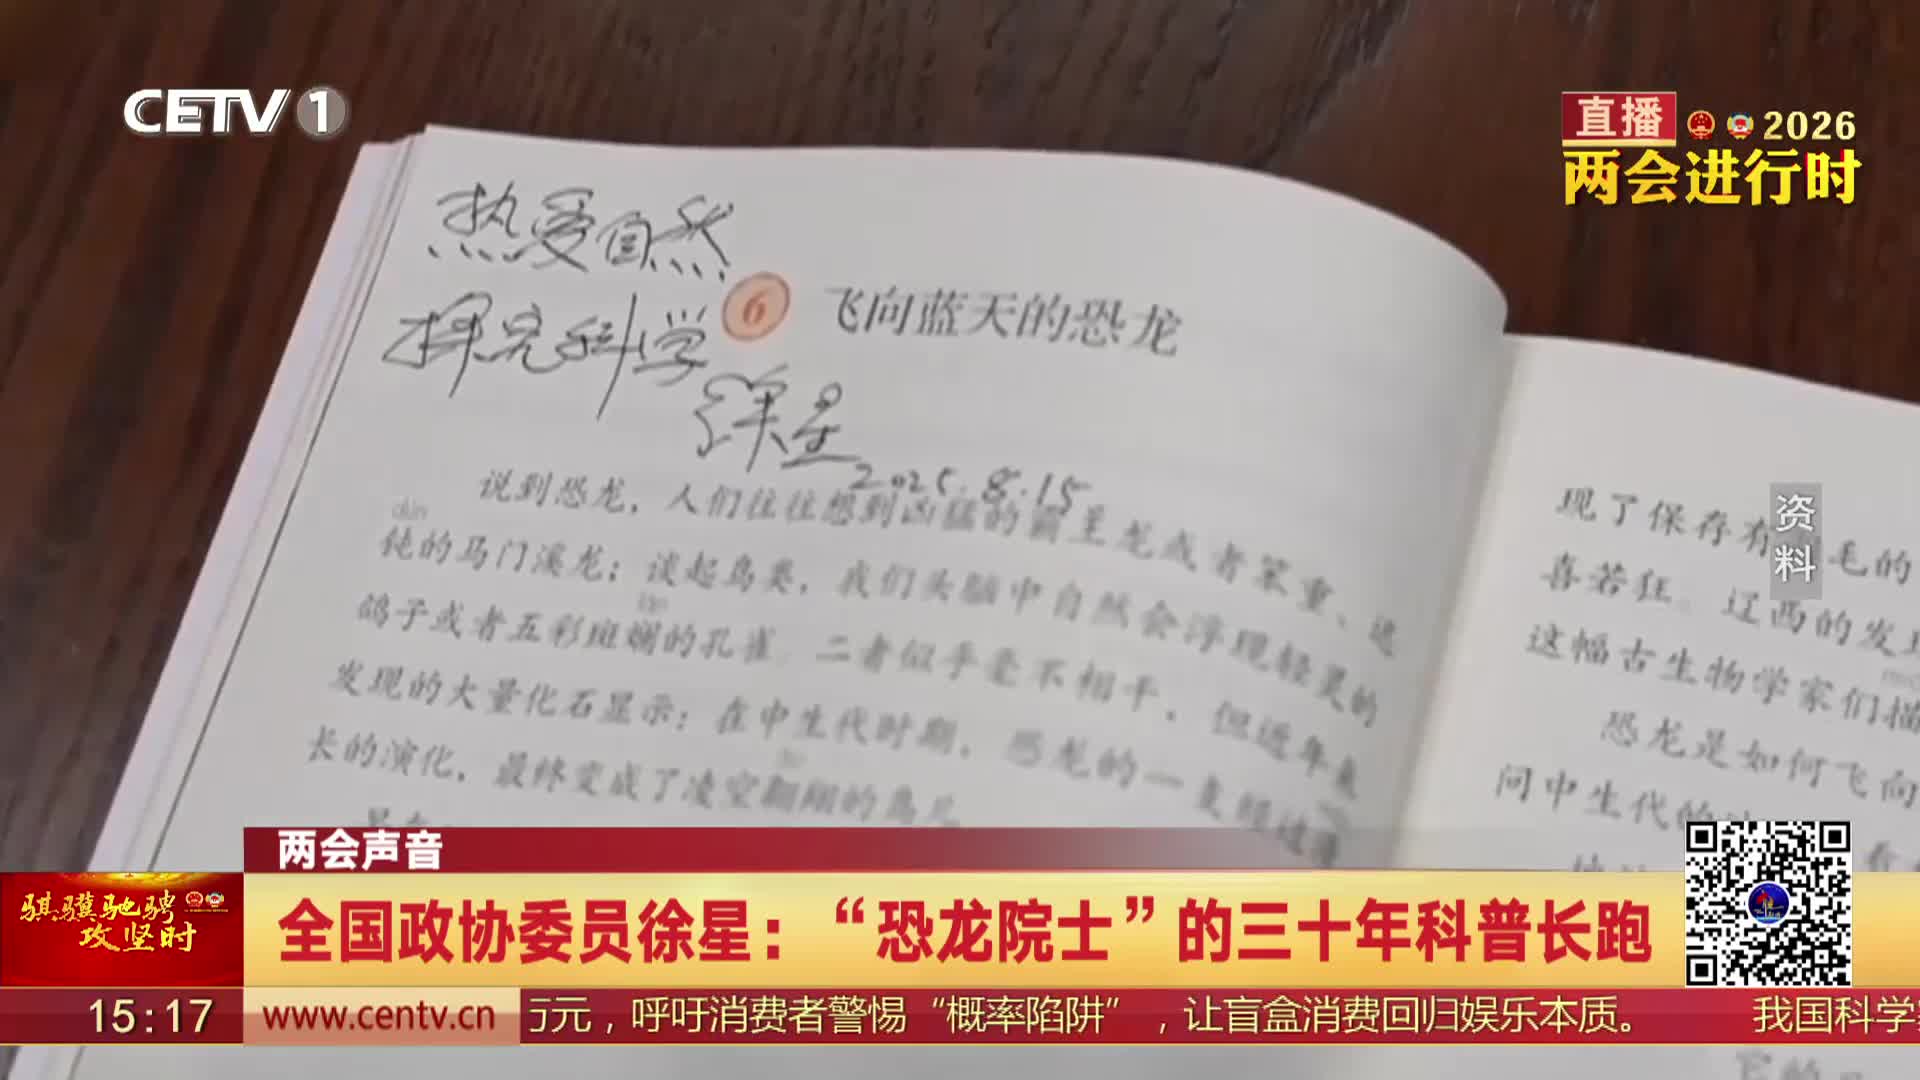 CETV 1
直播 2026
两会进行时
热爱自然
探究科学
徐星
2025.8.15
6 飞向蓝天的恐龙
说到恐龙，人们往往想到凶猛的霸王龙或者笨重、迟
dùn
钝的马门溪龙；谈起鸟类，我们头脑中自然会浮现轻灵的
lán
鸽子或者五彩斑斓的孔雀。二者似乎毫不相干，但近年来
发现的大量化石显示：在中生代时期，恐龙的一支经过漫
长的演化，最终变成了凌空翱翔的鸟儿。
现了保存有 毛的
喜若狂。辽西的发现
这幅古生物学家们描
恐龙是如何飞向
问中生代的
资料
两会声音
骐骥驰骋
攻坚时
全国政协委员徐星：“恐龙院士”的三十年科普长跑
15:17
www.centv.cn
万元，呼吁消费者警惕“概率陷阱”，让盲盒消费回归娱乐本质。 我国科学